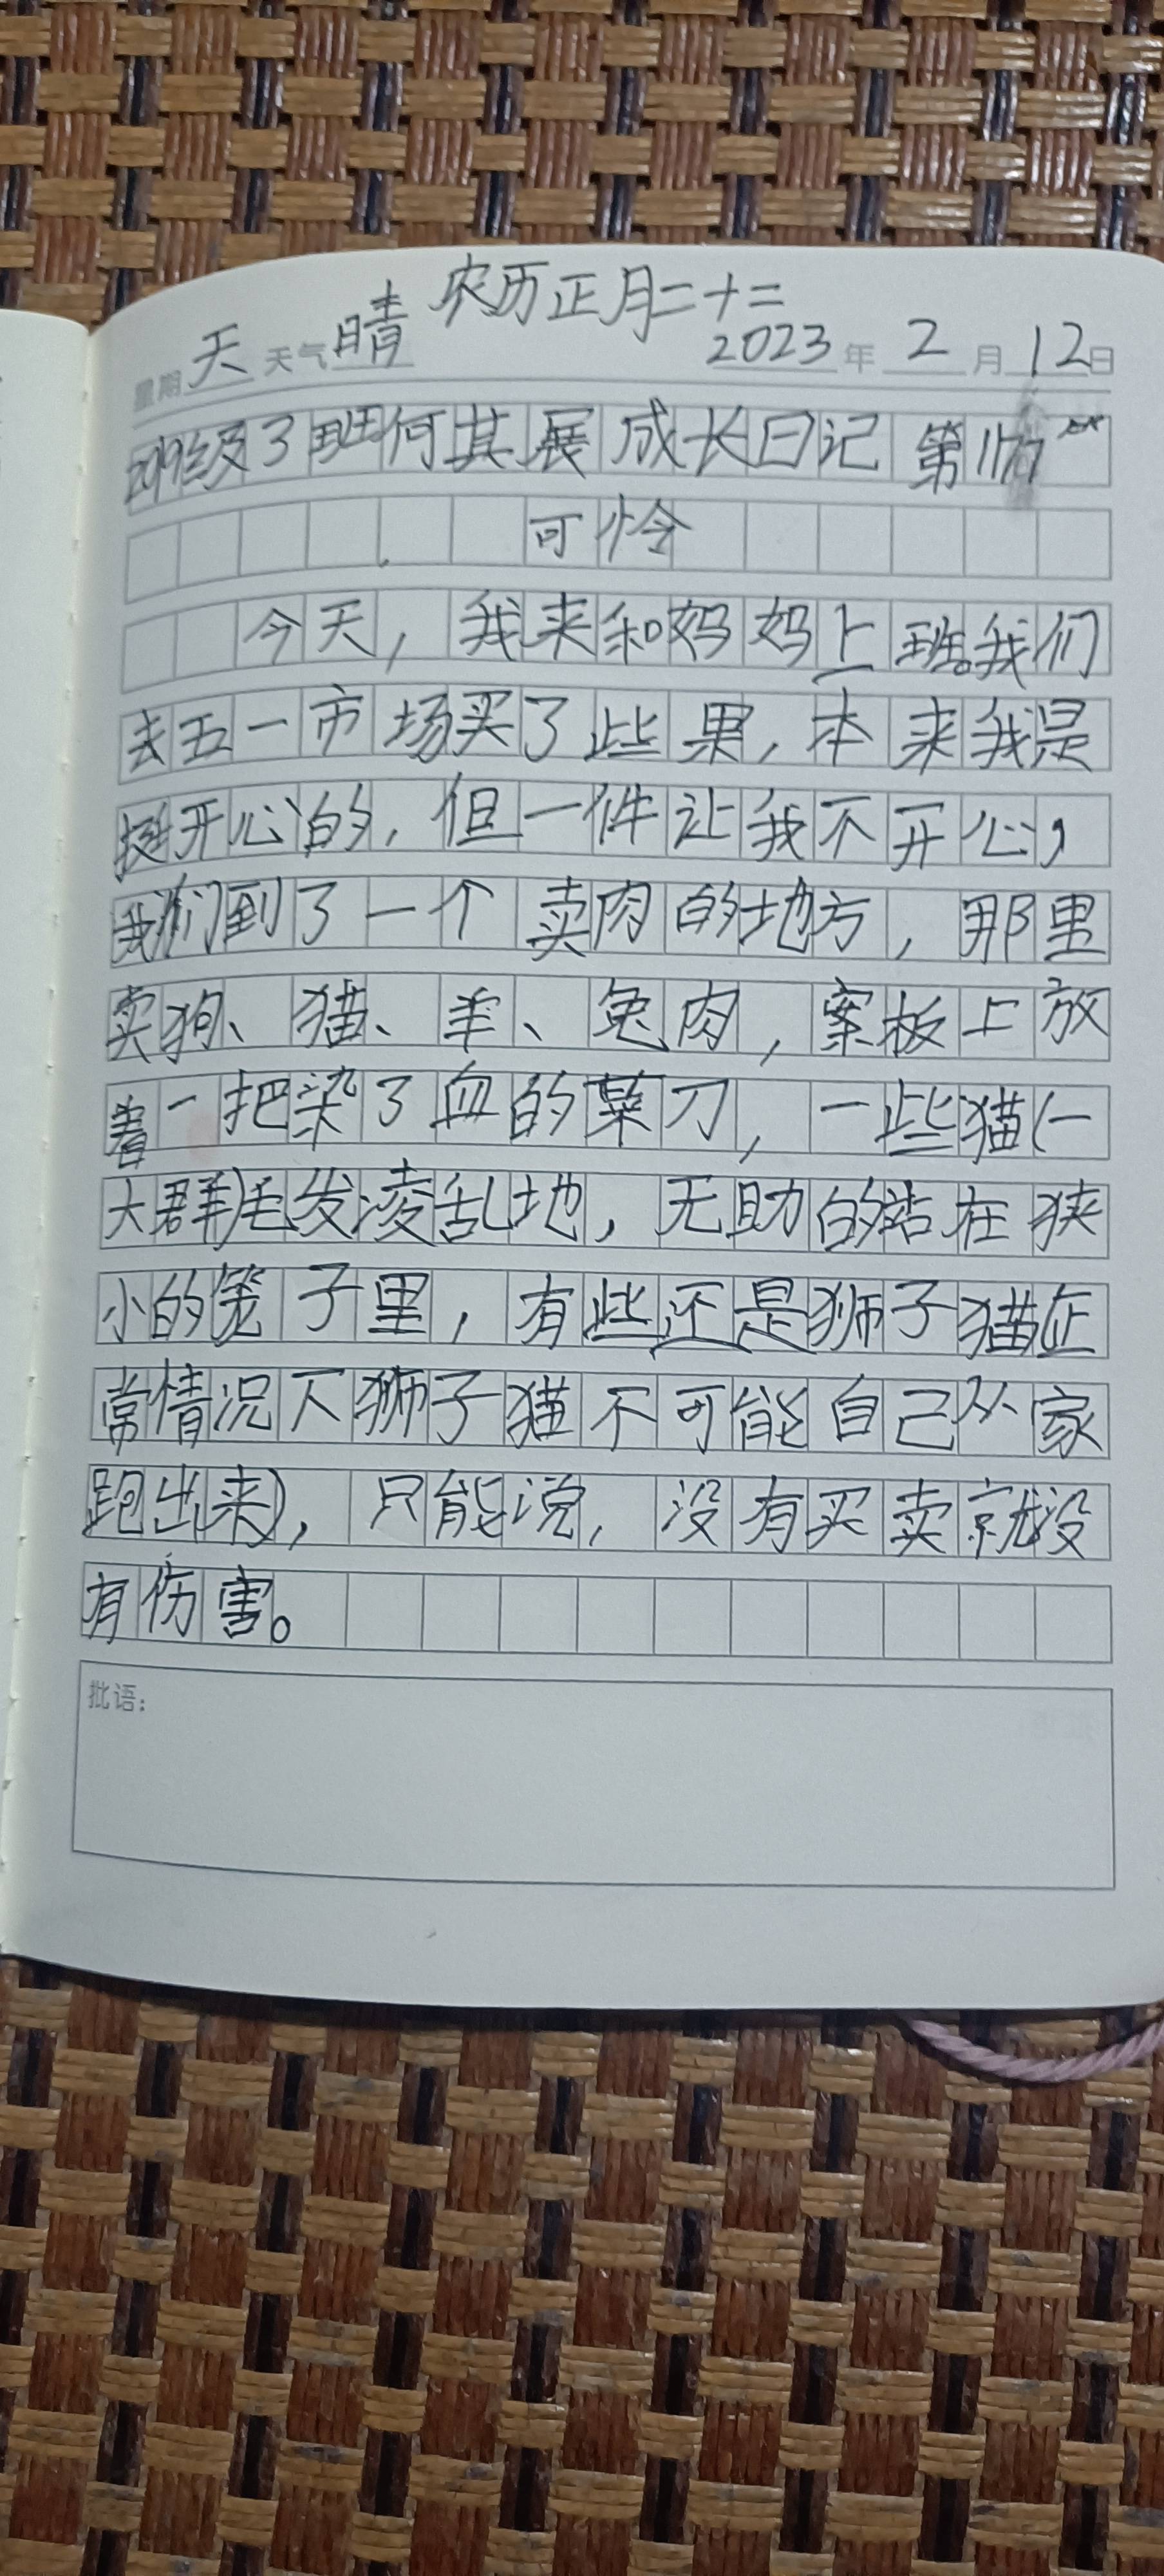 农历正月二十二
星期天 天气晴 2023年2月12日
2019级3班何其展成长日记 第
可怜
今天，我来和妈妈上班。我们
去五一市场买了些果，本来我是
挺开心的，但一件让我不开心，
我们到了一个卖肉的地方，那里
卖狗、猫、羊、兔肉，案板上放
着一把染了血的菜刀，一些猫(一
大群)毛发凌乱地，无助的站在狭
小的笼子里，有些还是狮子猫(正
常情况下狮子猫不可能自己从家
跑出来)，只能说，没有买卖就没
有伤害。
批语：